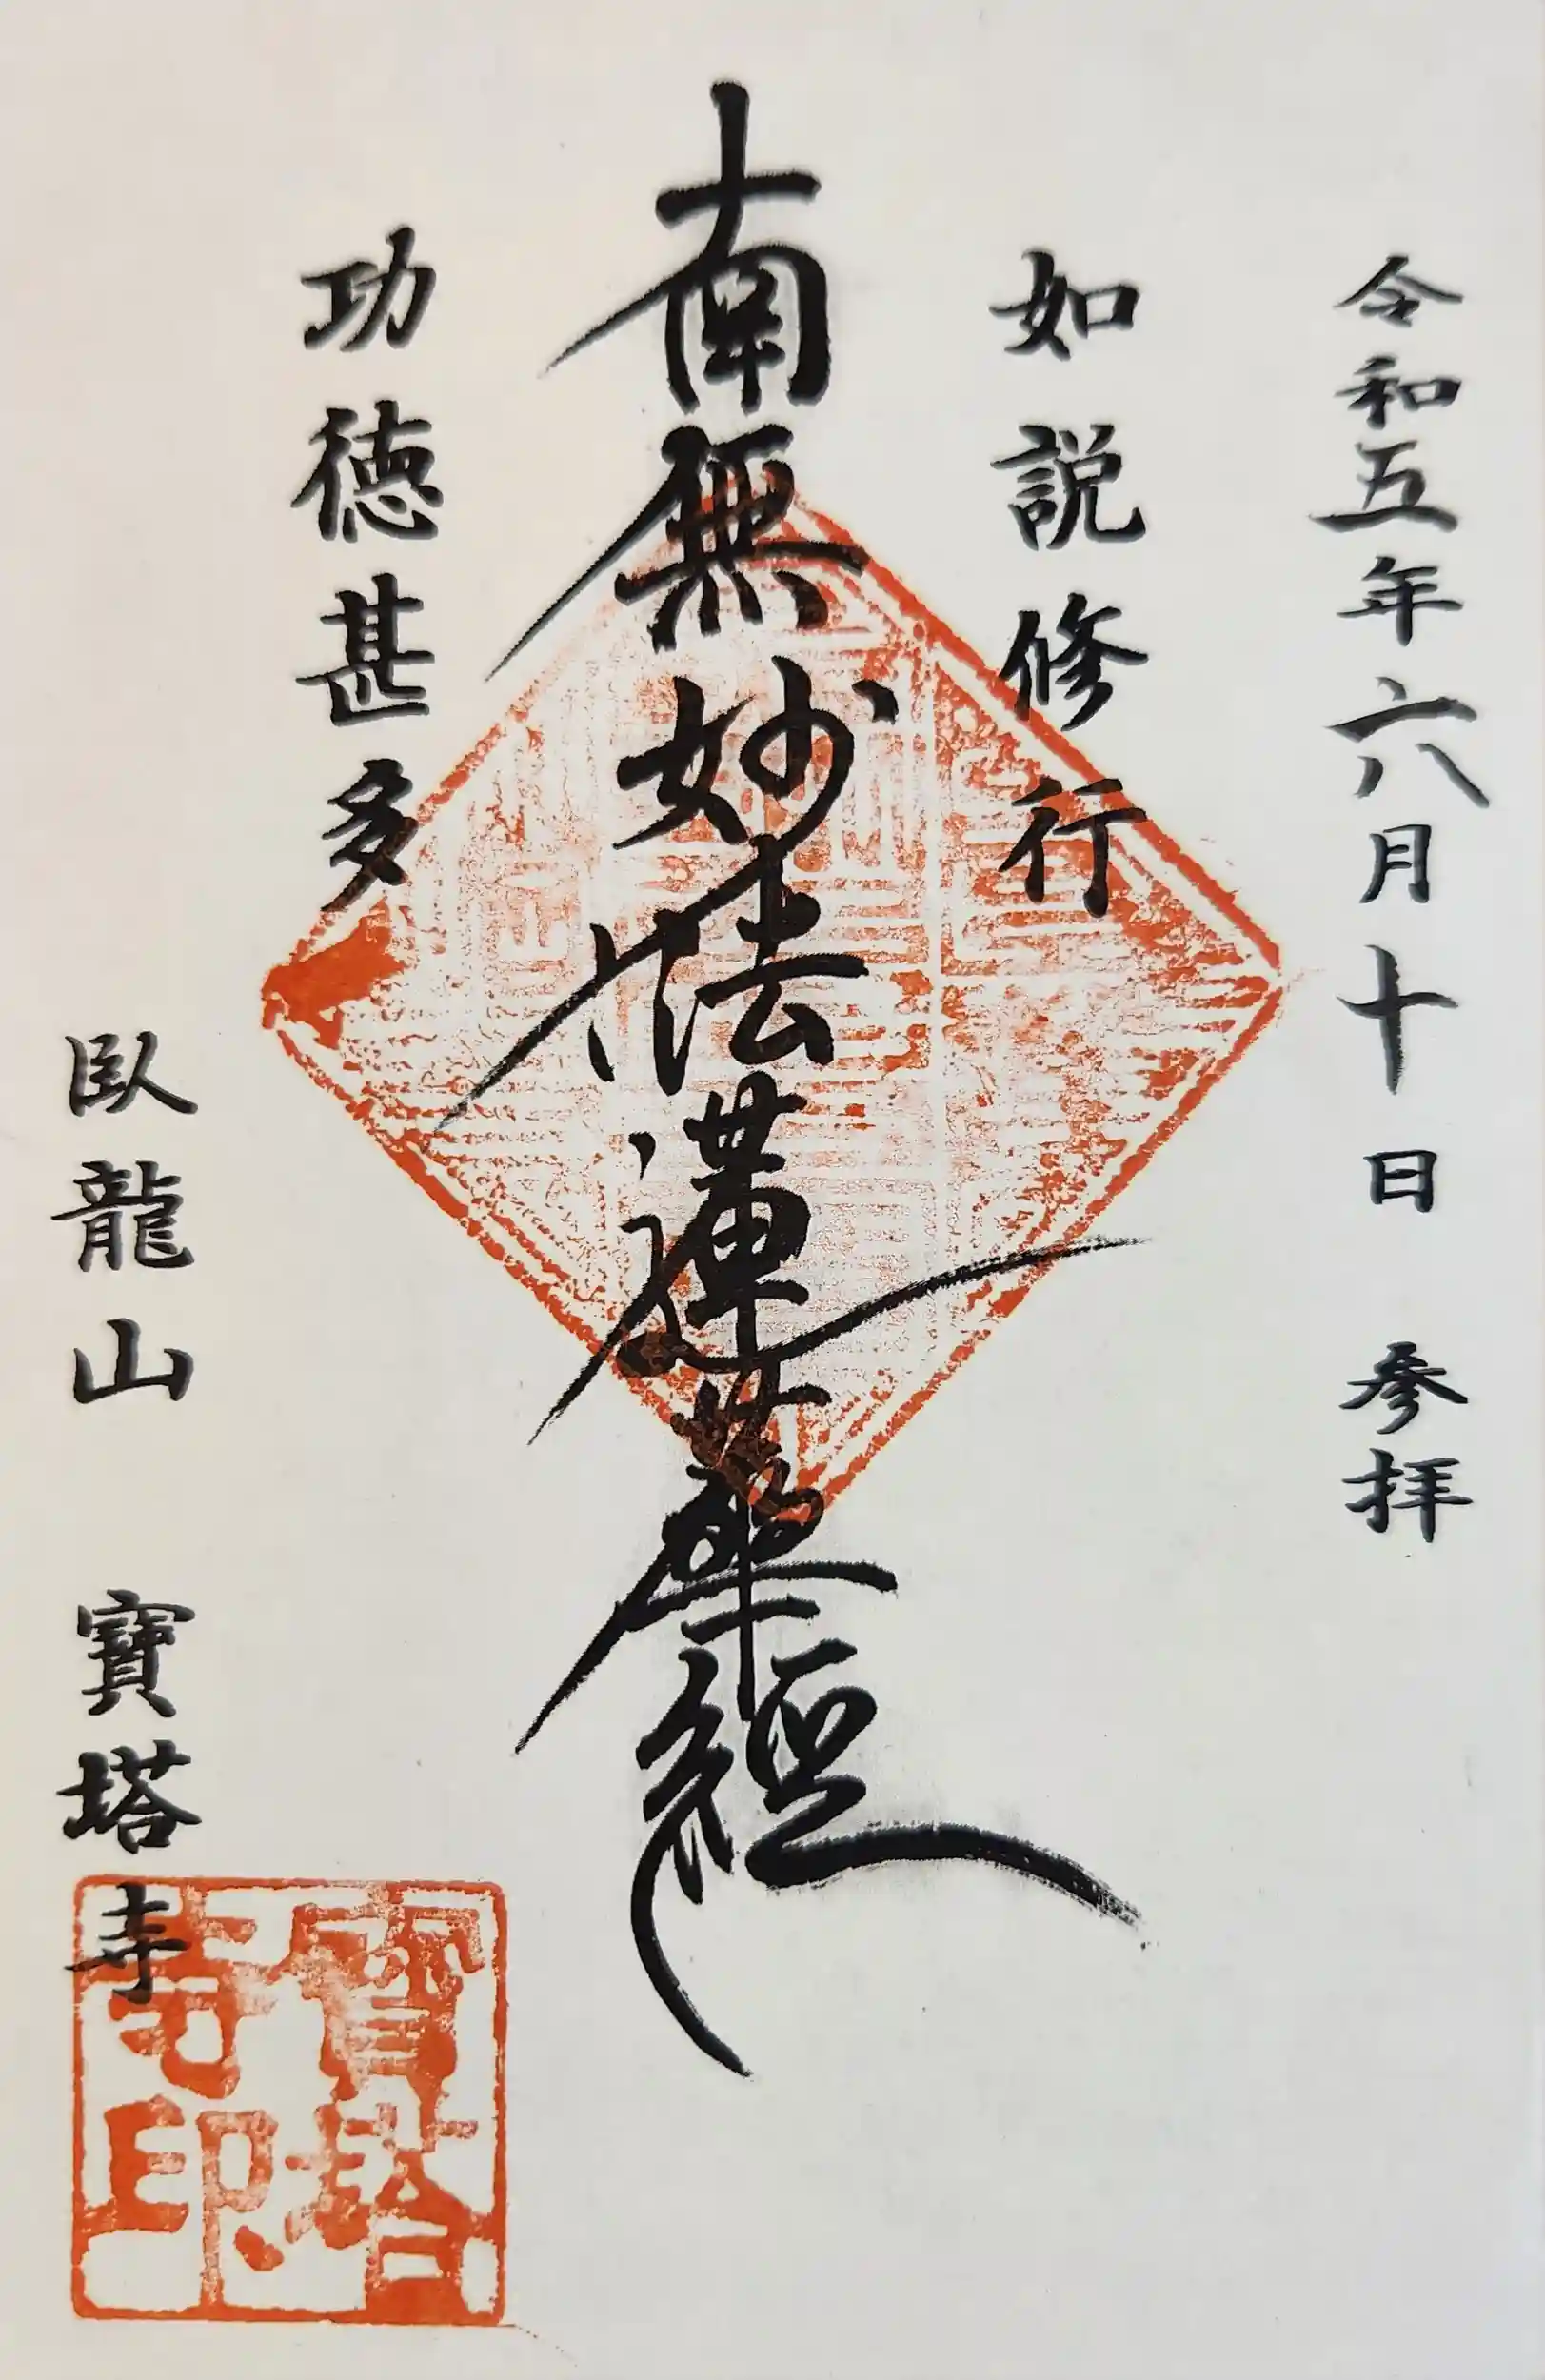 令和五年六月十日 参拝
如説修行
南無妙法蓮華經
功徳甚多
臥龍山 寶塔寺
寶塔寺印